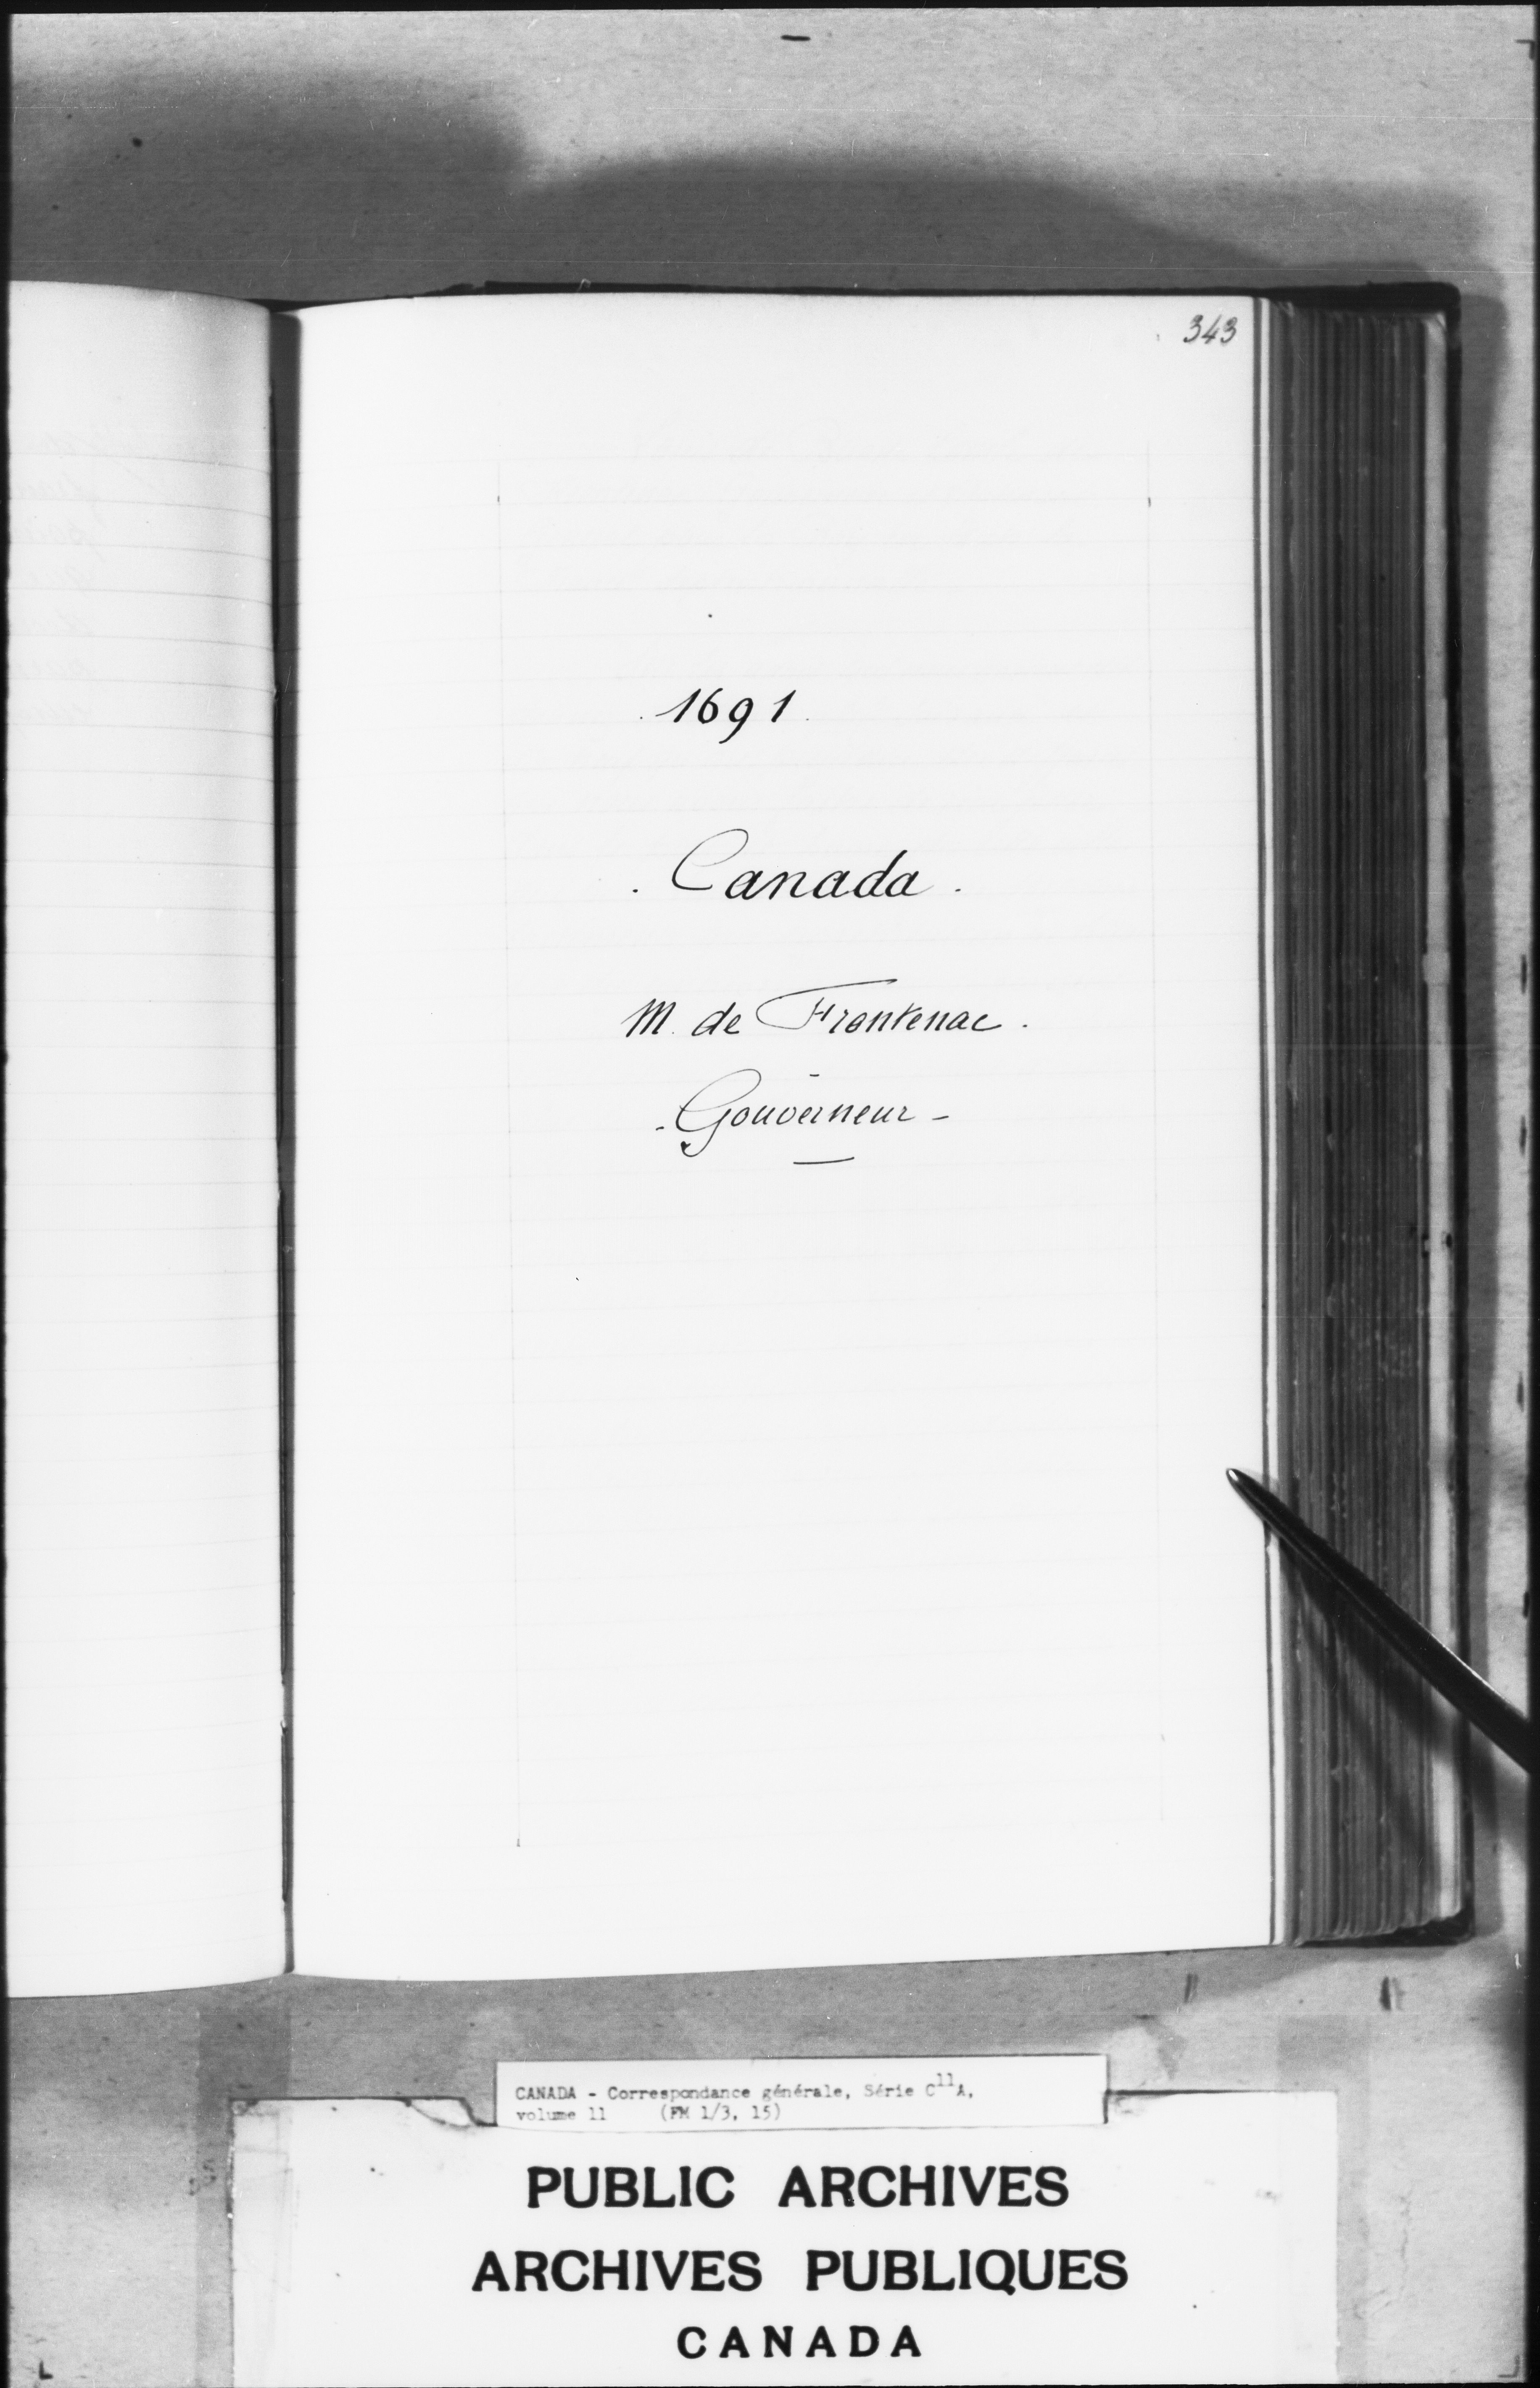 343
1691
. Canada .
M. de Frontenac .
- Gouverneur -
CANADA - Correspondance générale, Série C11A,
volume 11 (FM 1/3, 15)
PUBLIC ARCHIVES
ARCHIVES PUBLIQUES
CANADA